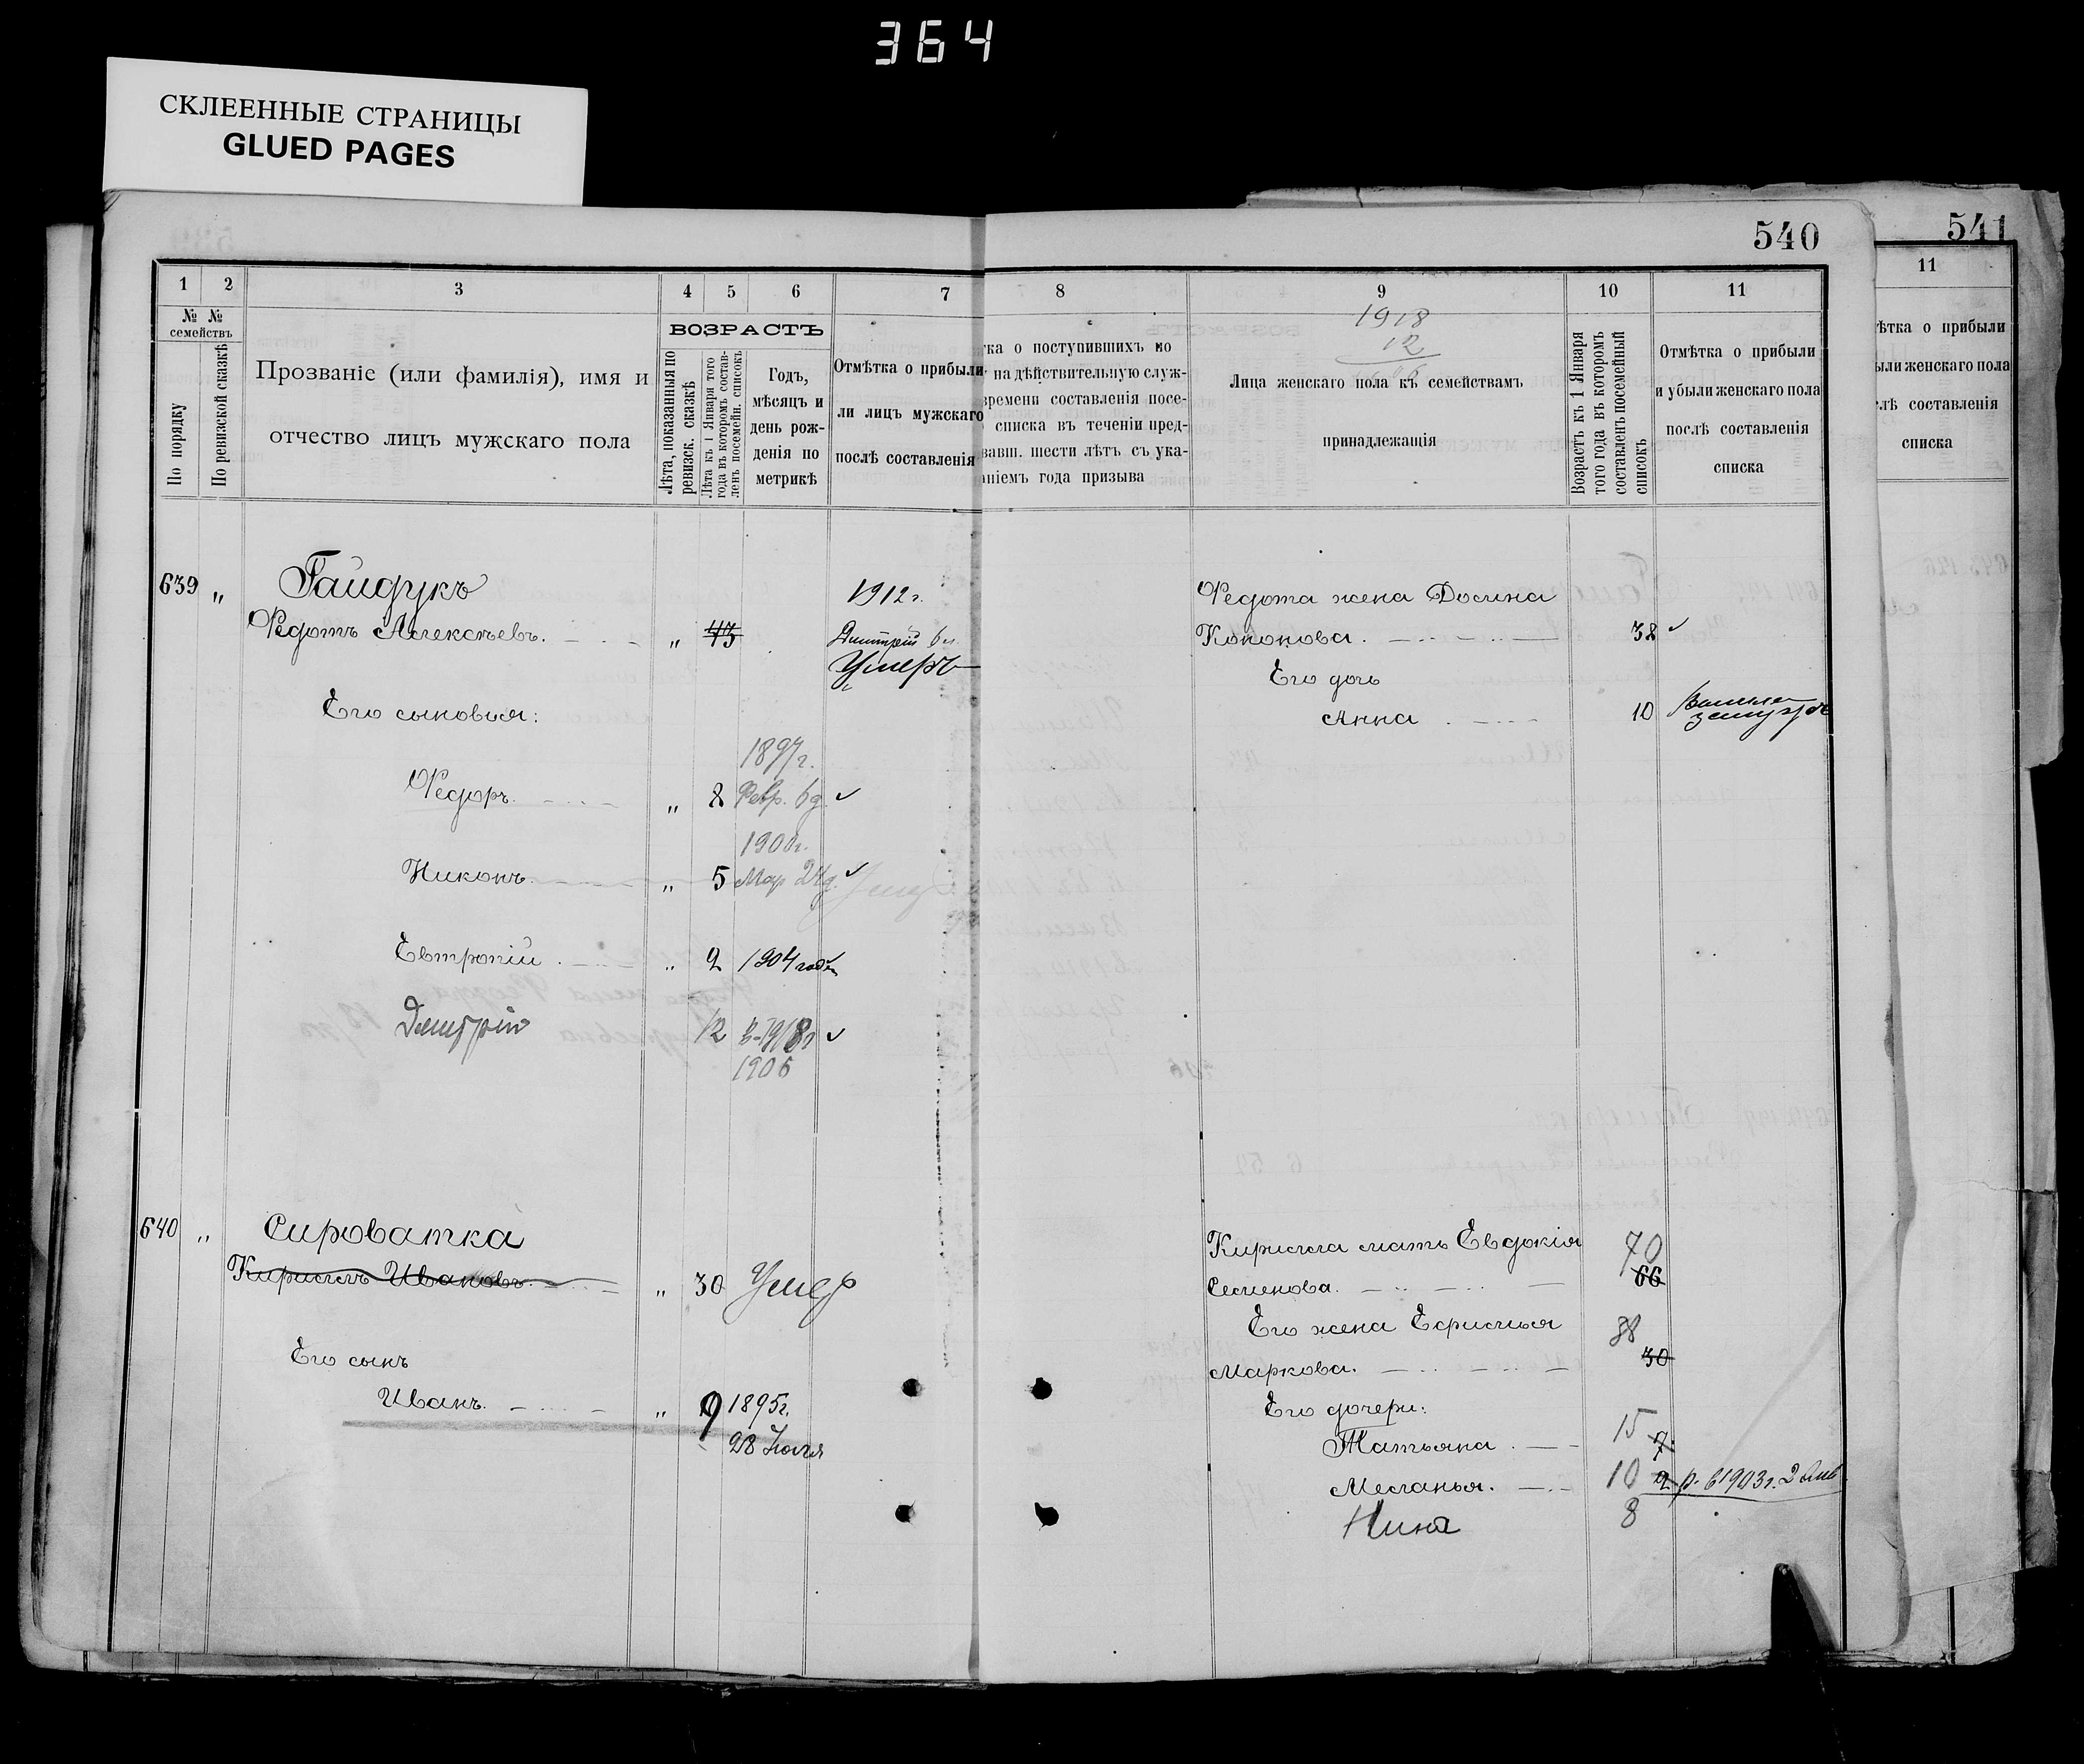 364
СКЛЕЕННЫЕ СТРАНИЦЫ
GLUED PAGES
540
541
1 2 3 4 5 6 7 8 9 10 11
11
№ № семействъ
По порядку
По ревизской сказкѣ
Прозваніе (или фамилія), имя и
отчество лицъ мужскаго пола
ВОЗРАСТЪ
Лѣта, показанныя по
ревизск. сказкѣ
Лѣта къ 1 Января того
года въ которомъ состав-
ленъ посемейн. списокъ
Годъ,
мѣсяцъ и
день рож-
денія по
метрикѣ
Отмѣтка о прибыли
ли лицъ мужскаго
послѣ составленія
тка о поступившихъ по
на дѣйствительную служ-
времени составленія посе-
списка въ теченіи пред-
вавш. шести лѣтъ съ ука-
аніемъ года призыва
1918
12
1906
Лица женскаго пола къ семействамъ
принадлежащія
Возрастъ къ 1 Января
того года въ которомъ
составленъ посемейный
списокъ
Отмѣтка о прибыли
и убыли женскаго пола
послѣ составленія
списка
ѣтка о прибыли
ыли женскаго пола
лѣ составленія
списка
639 " Гайдукъ
Федотъ Алексѣевъ. " 43
1912 г.
Дмитрій
Умеръ
Его сыновья:
1897 г.
Федоръ. " 8 Февр. 6 д.
1900 г.
Никонъ. " 5 Мар 24 д.
Евтропій. " 2 1904
Дмитрій 12 в-1918 г
1906
Федота жена
Кононова. 38
Его дочь
Анна 10 Вышла
замужъ
640 " Сироватка
Кириллъ Ивановъ. " 30 Умер
Его сынъ
Иванъ. " 9 1895 г.
28 Іюля
Кирилла мать Евдокія 70
Семенова. 66
Его жена Ефимія 38
Маркова. 30
Его дочери:
Татьяна. 15 7
Меланья. 10 2 р. в 1903 г. 2 Янв.
Нина 8